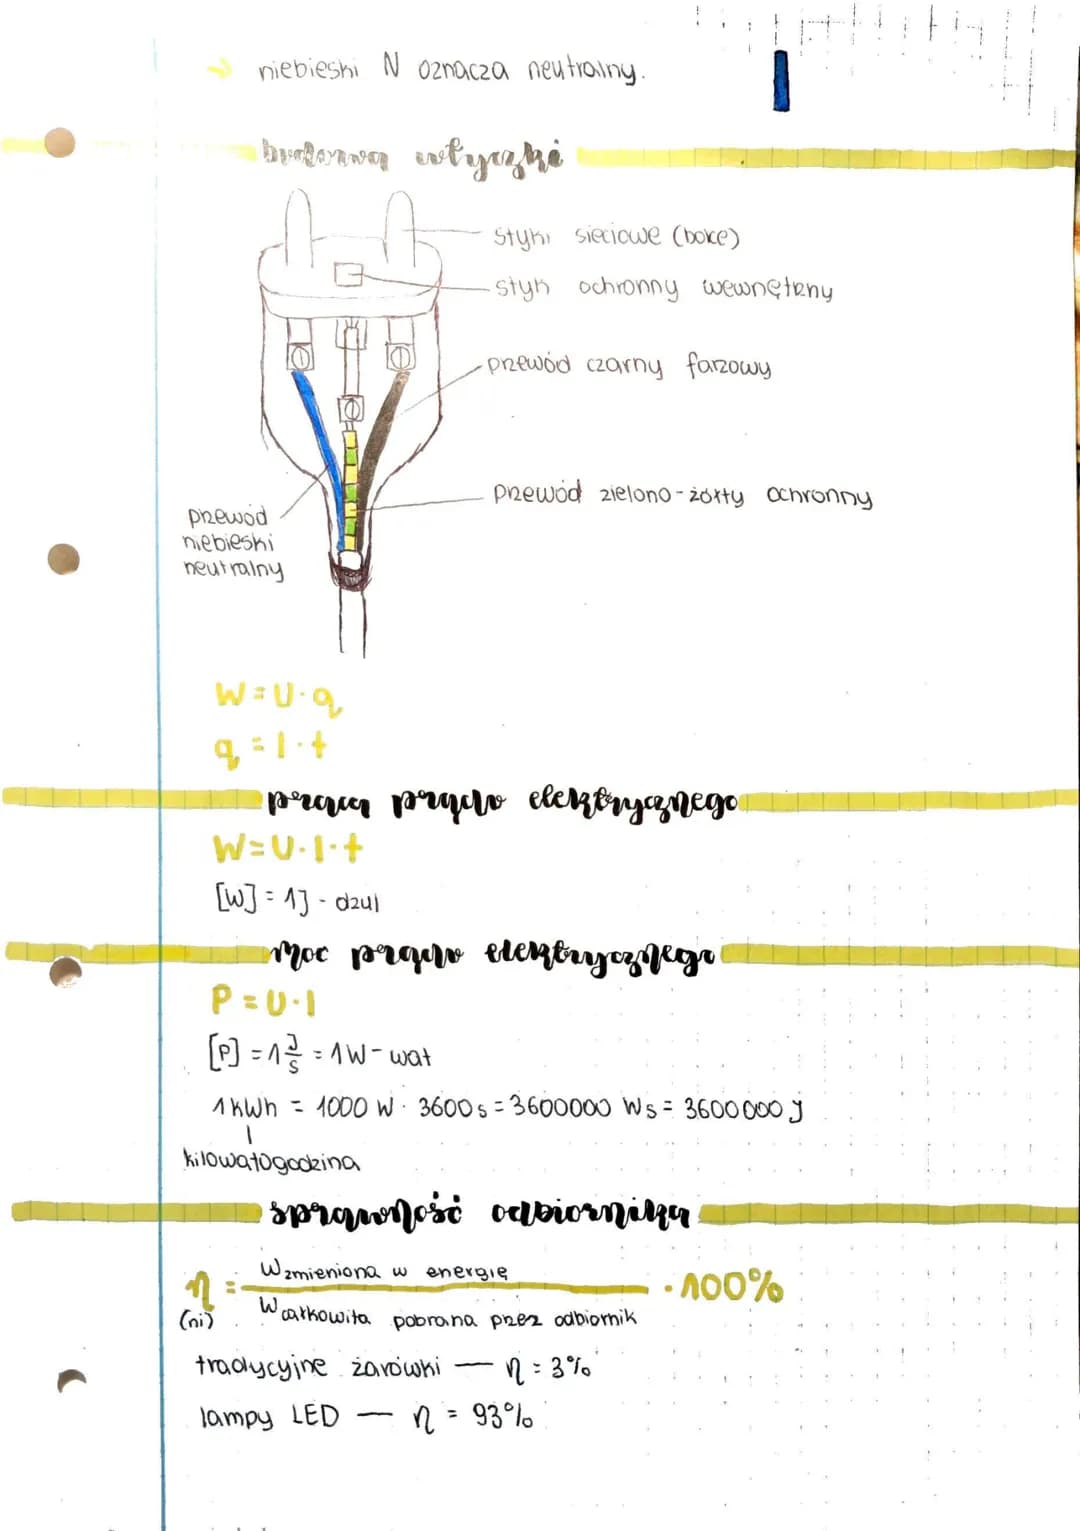 → niebieski N oznacza neutralny.
budowa wtyczki
styki sieciowe (bolce)
styk ochronny wewnętrzny
przewód czarny fazowy
przewód zielono-żółty ochronny
przewód
niebieski
neutralny
W=U·q
q=I·t
praca prądu elektrycznego
W=U·I·t
[W] = 1J - dżul
moc prądu elektrycznego
P=U·I
[P] = 1 J/s = 1W - wat
1kWh = 1000 W · 3600s = 3600000 Ws = 3600000 J
kilowatogodzina
sprawność odbiornika
η = W zmieniona w energię / W całkowita pobrana przez odbiornik · 100%
(ni)
tradycyjne żarówki — η = 3%
lampy LED — η = 93%